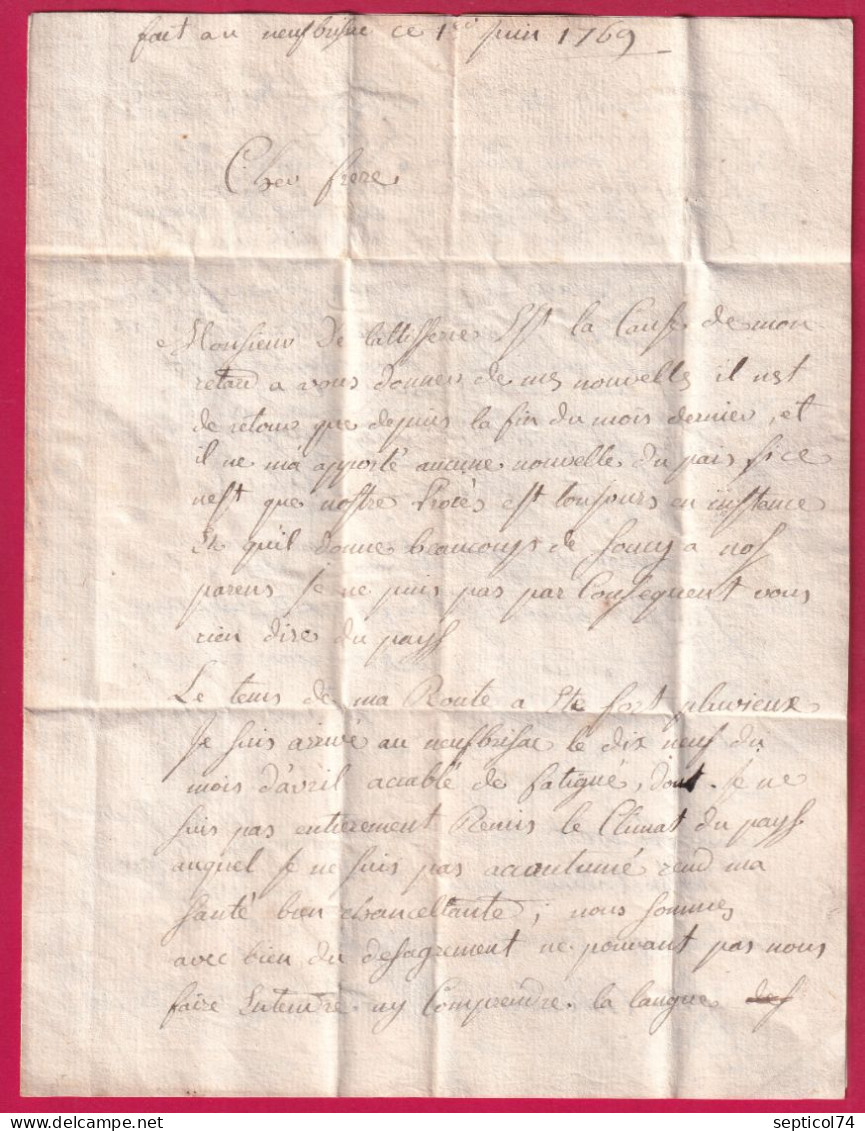 fait au neufbrisac ce 1er juin 1769
Cher frere
Monsieur De Est la Cause de mon
retard a vous donner de mes nouvelle il nest
de retour que depuis la fin du mois dernier, et
il ne ma apporté aucune nouvelle du pais si ce
nest que nostre Procès est toujours en instance
Et quil donne beaucoups de soucy a nos
parens Je ne puis pas par Consequent vous
rien dire du pays
Le tems de ma Route a Ete fort pluvieux
Je suis arrivé au neufbrisac le dix neuf du
mois d'avril accablé de fatigue, dont Je ne
suis pas entierement Remis le Climat du pays
auquel Je ne suis pas accoutumé rend ma
santé bien chancellante; nous sommes
avec bien du desagrement ne pouvant pas nous
faire Entendre ny Comprendre la langue des
www.delcampe.net
septicol74